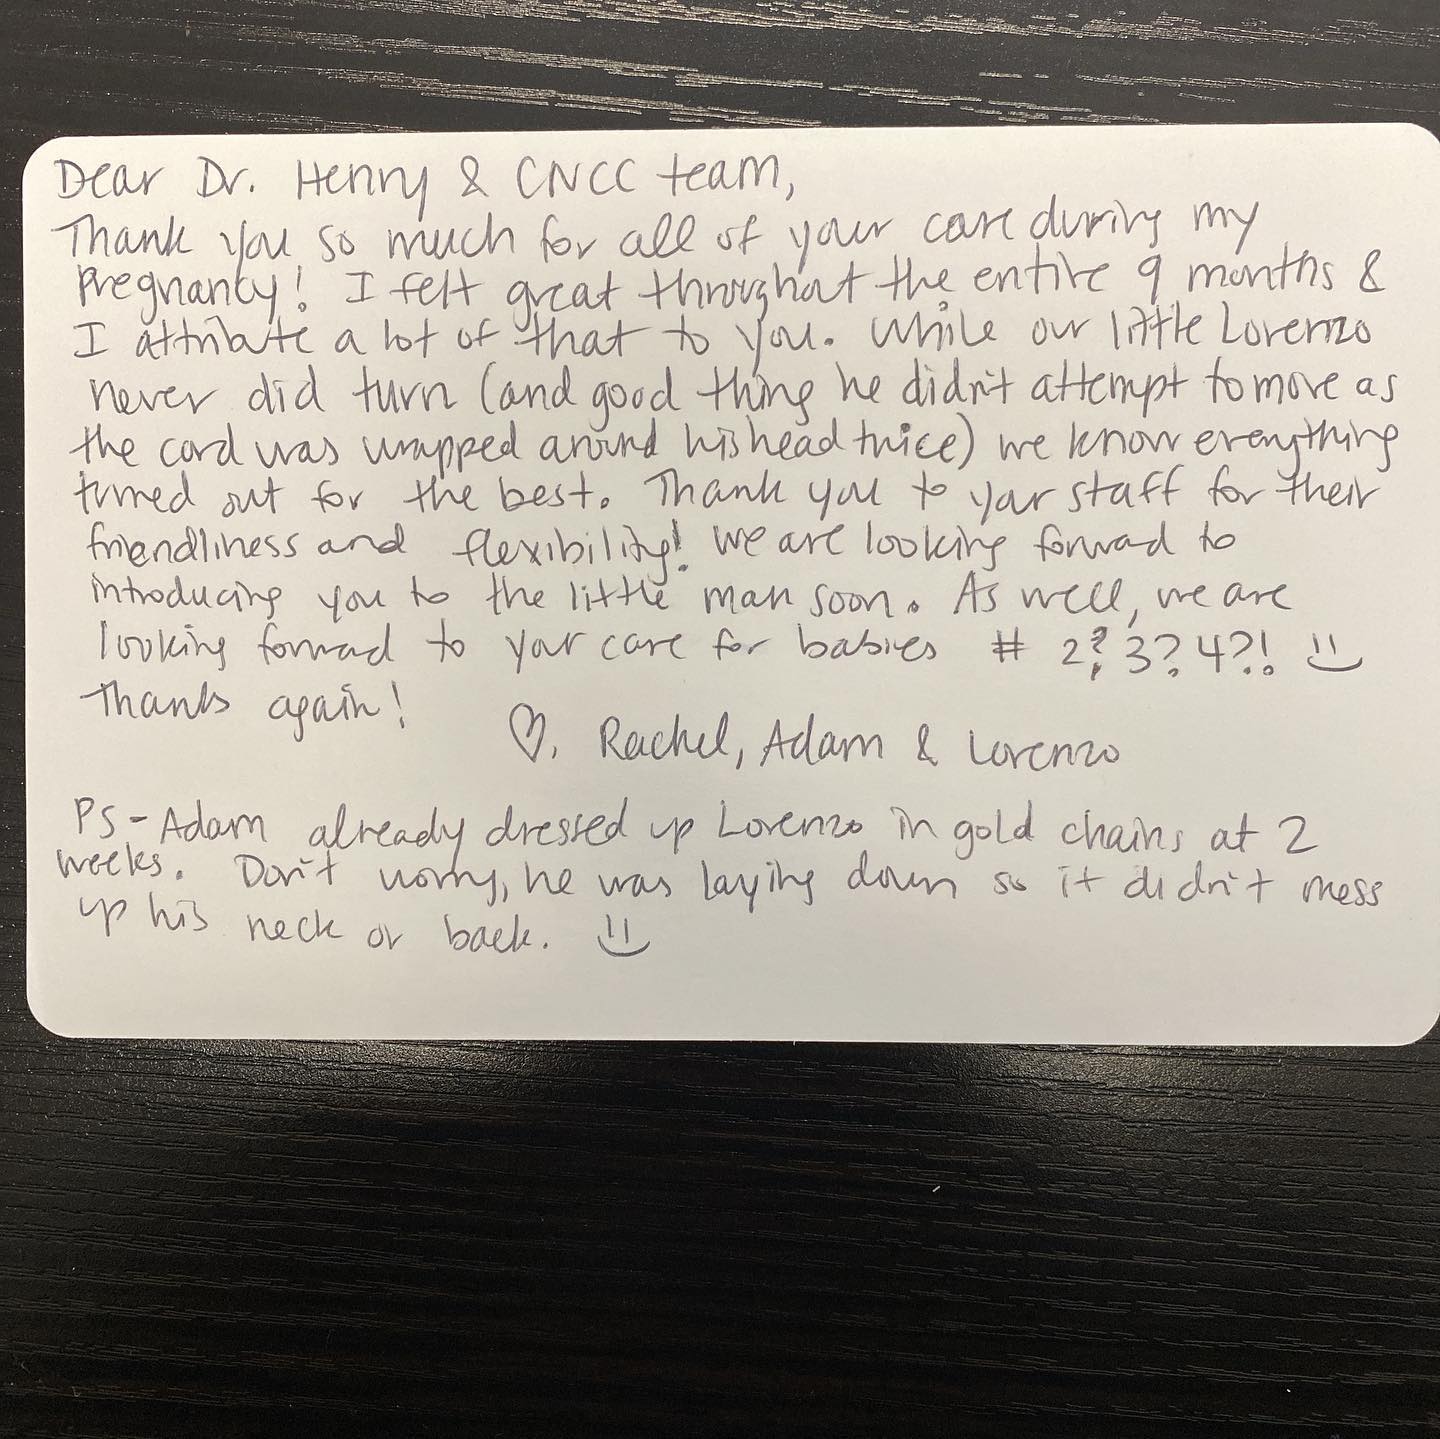 Dear Dr. Henny & CNCC team,
Thank you so much for all of your care during my
pregnancy! I felt great throughout the entire 9 months &
I attribute a lot of that to you. While our little Lorenzo
never did turn (and good thing he didn't attempt to move as
the cord was wrapped around his head twice) we know everything
turned out for the best. Thank you to your staff for their
friendliness and flexibility! We are looking forward to
introducing you to the little man soon. As well, we are
looking forward to your care for babies # 2? 3? 4?! :)
Thanks again!
♡, Rachel, Adam & Lorenzo
PS - Adam already dressed up Lorenzo in gold chains at 2
weeks. Don't worry, he was laying down so it didn't mess
up his neck or back. :)